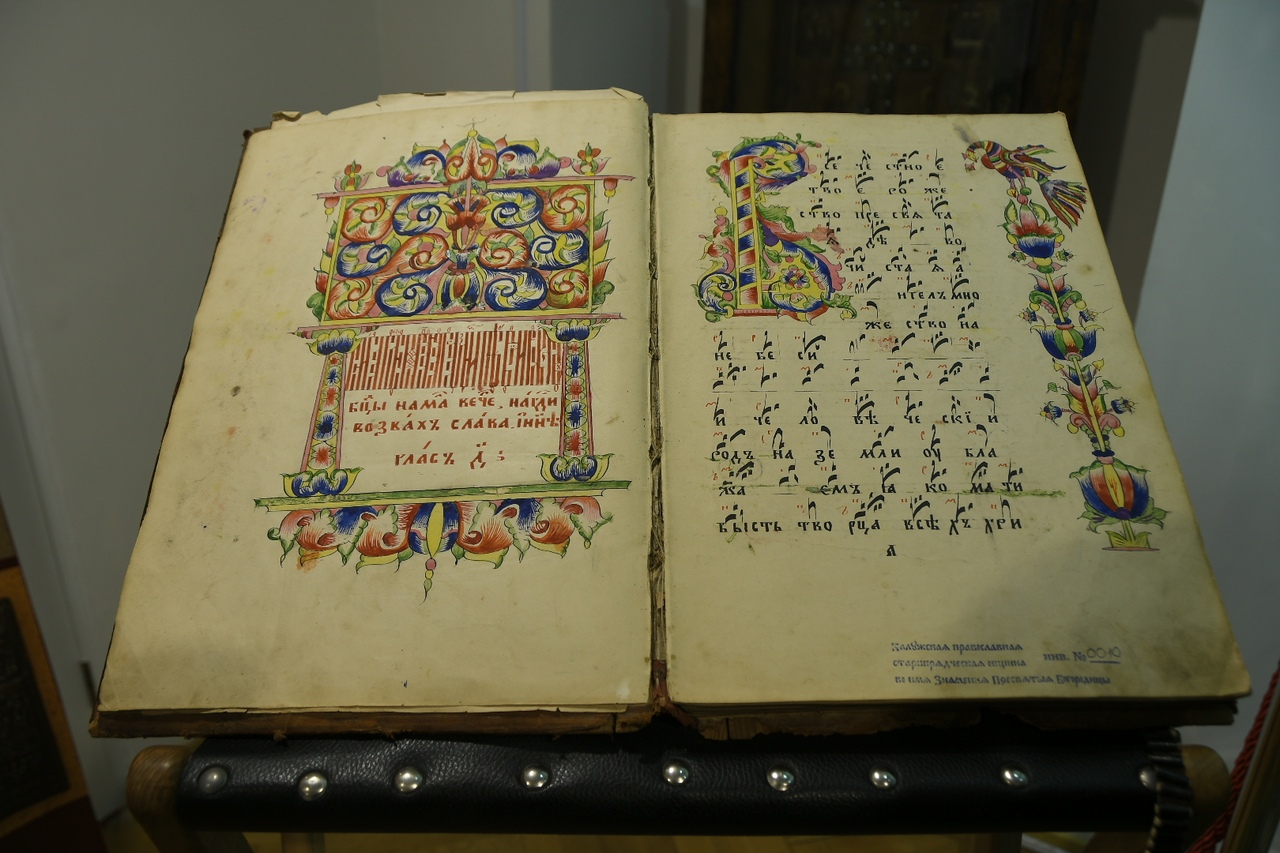 бцы на мал вече, на гди
воззвахъ слава, и нне
гласъ д҃ :
Все че стно е
тво е ро же
ство пре свѧ та
ѧ дѣ во
чи ста ѧ а
нгелъ мно
же ство на
не бе си
и че ло вѣ че скїи
родъ на зе мли оу бла
жа емъ ꙗ ко ма ти
бысть тво рца всѣ хъ хри
Калужская православная
старообрядческая община
во имя Знамения Пресвятыя Богородицы
инв. № 0010